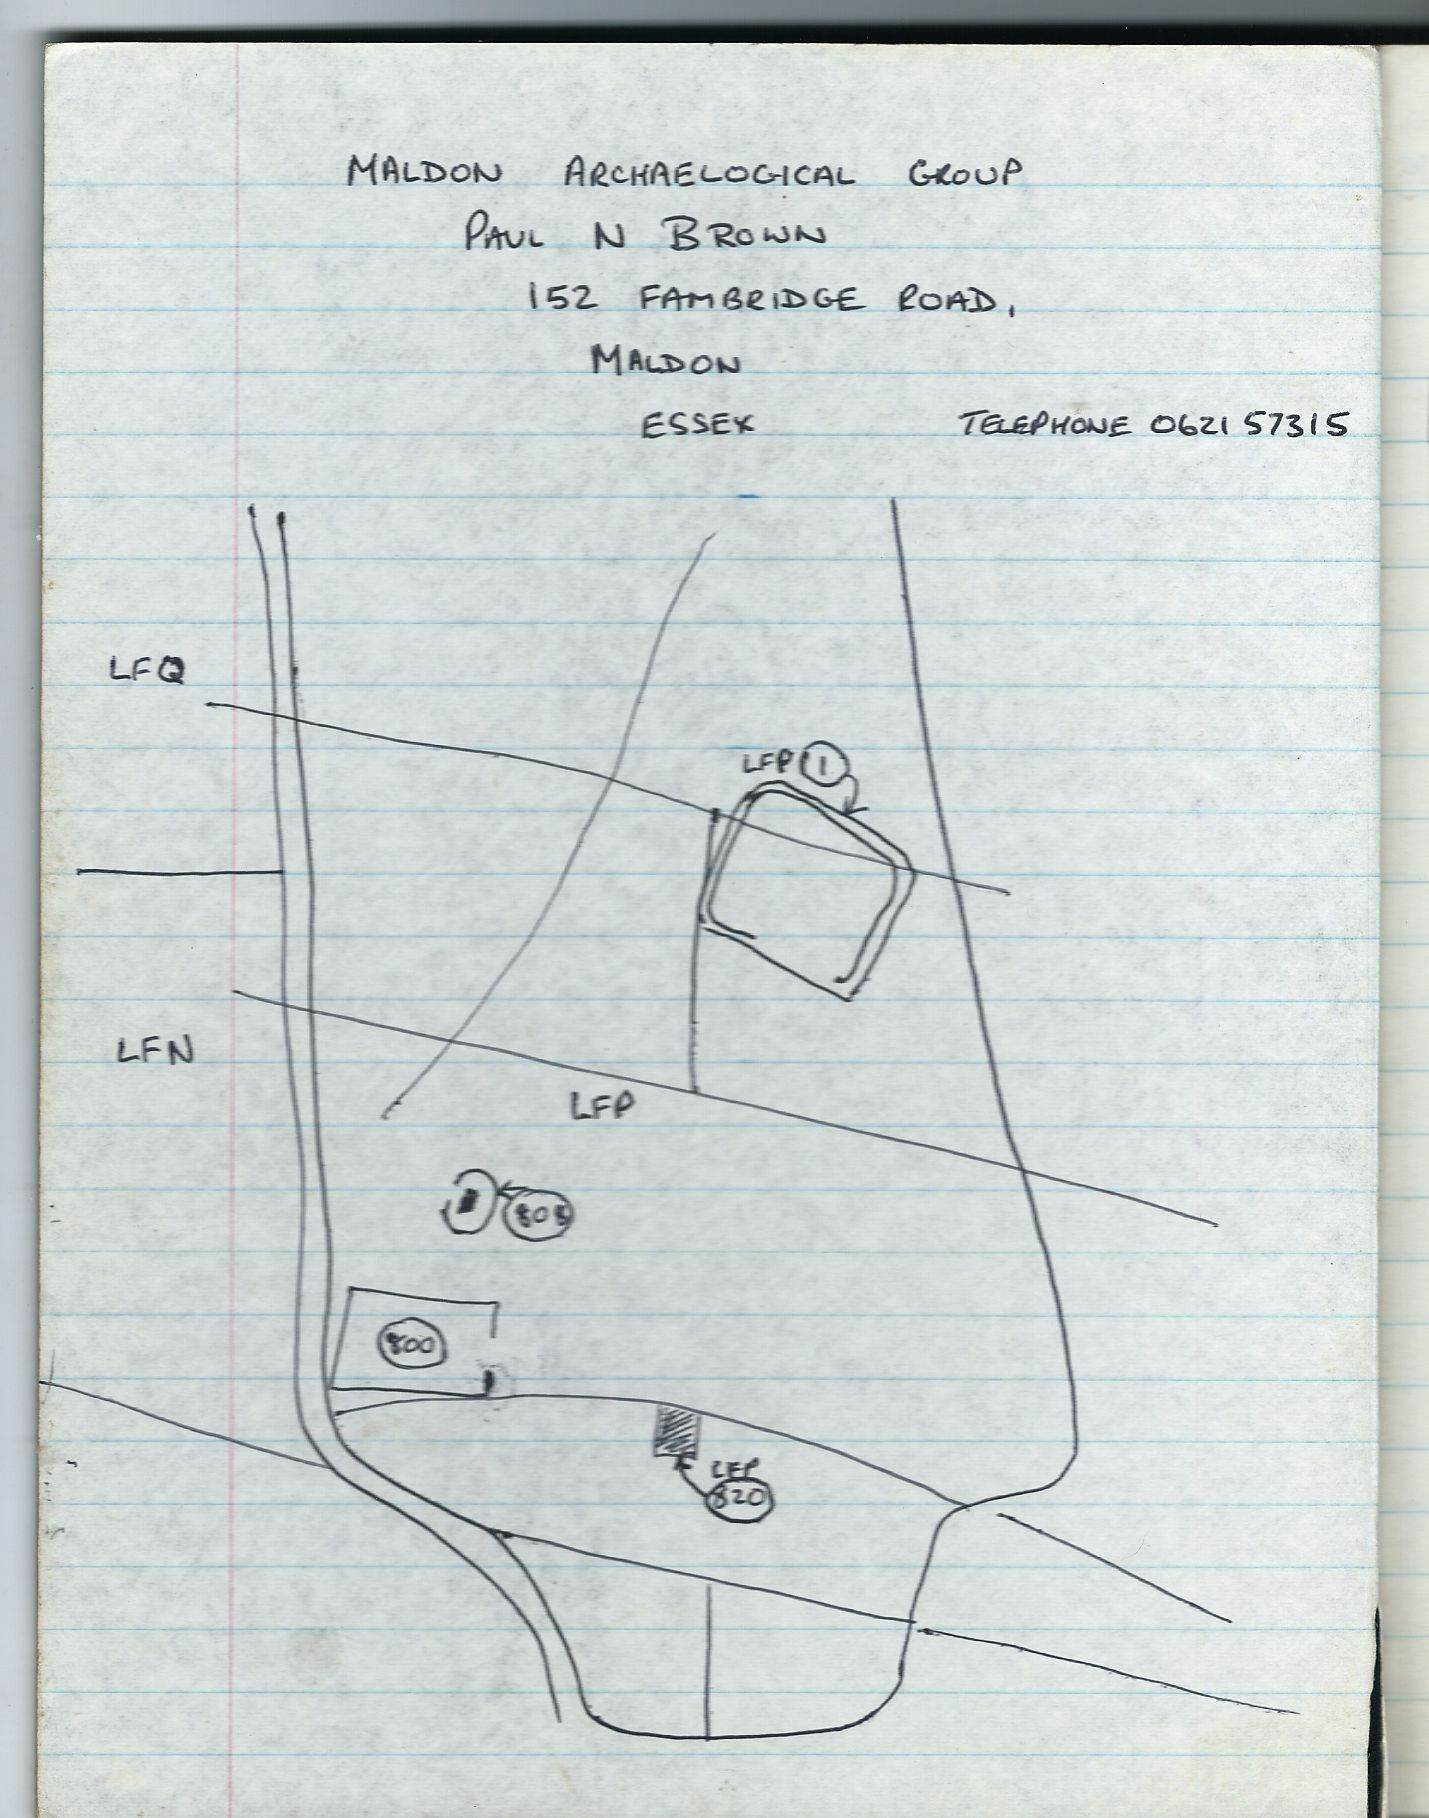 MALDON ARCHAELOGICAL GROUP
PAUL N BROWN
152 FAMBRIDGE ROAD,
MALDON
ESSEX TELEPHONE 0621 57315
LFQ
LFP 1
LFN
LFP
808
800
LFP
820